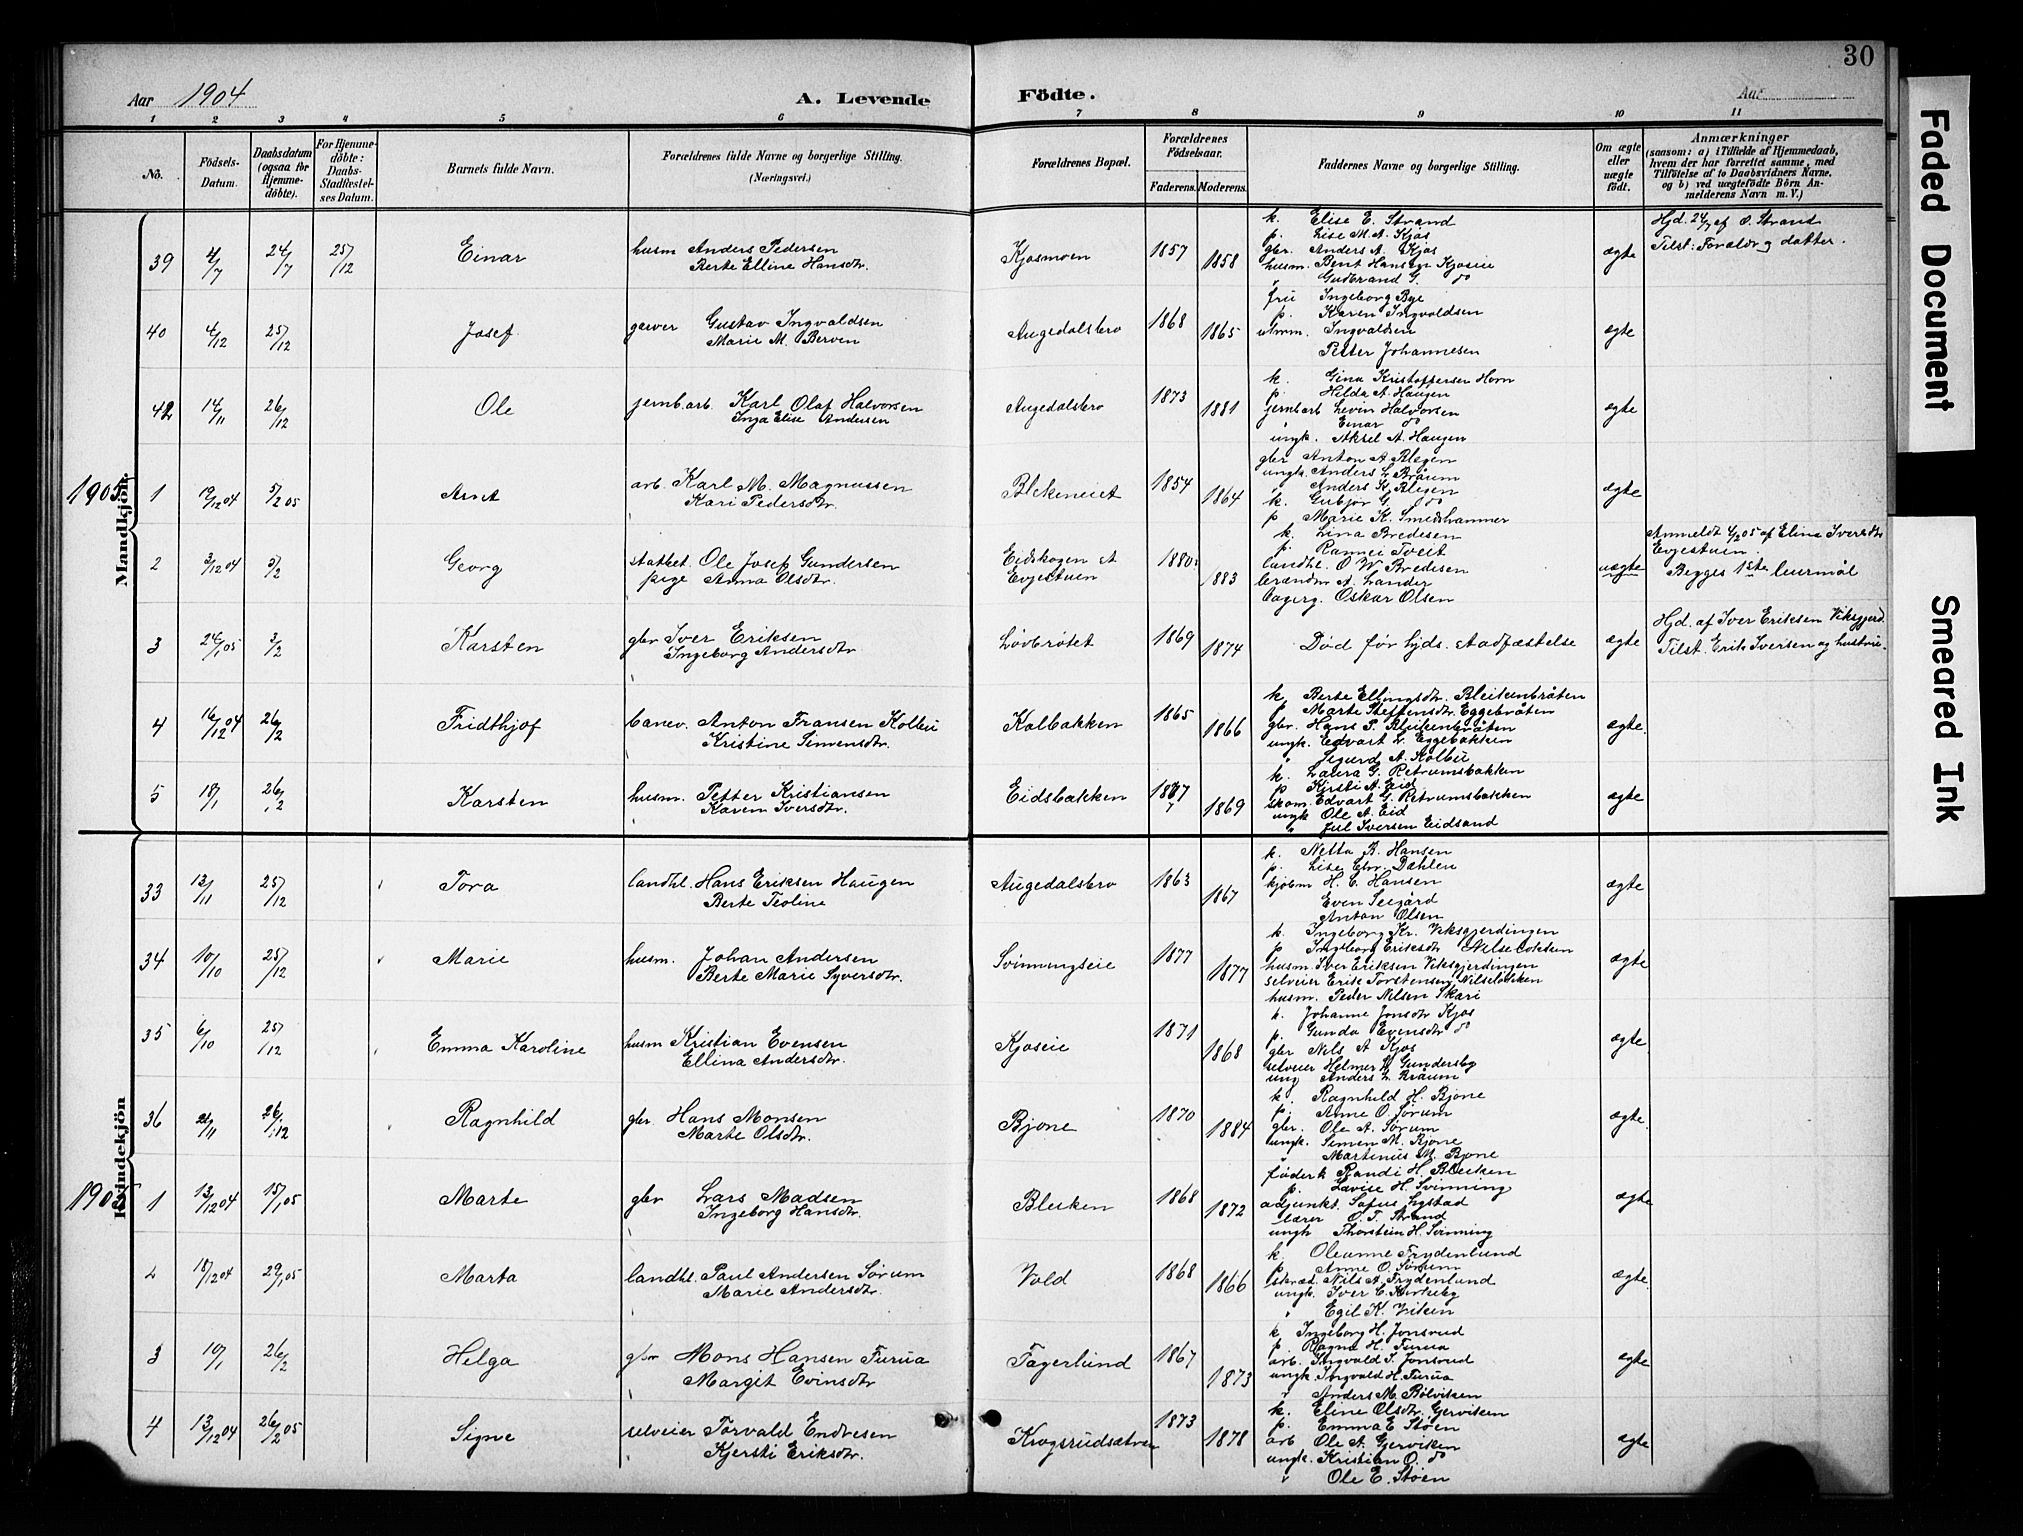 30
Aar 1904 A. Levende Födte. Aar
1 2 3 4 5 6 7 8 9 10 11
No. Födsels-Datum. Daabsdatum (ogsaa for Hjemmedöbte). For Hjemmedöbte: Daabs-Stadfæstelses Datum. Barnets fulde Navn. Forældrenes fulde Navne og borgerlige Stilling. (Næringsvei.) Forældrenes Bopæl. Forældrenes Födselsaar. Faderens. Moderens. Faddernes Navne og borgerlige Stilling. Om ægte eller uægte födt. Anmærkninger (saasom: a) i Tilfælde af Hjemmedaab, hvem der har forrettet samme, med Tilföielse af to Daabsvidners Navne, og b) ved uægtefödte Börn Anmelderens Navn m. V.)
Mandkjön.
39 4/7 24/7 25/12 Einar husm Anders Pedersen Kjosmoen 1857 1858 ægte
Berte Elline Hansdtr.
k. Elise E. Strand
p. Lise M. A. Kjos
gbr. Anders A. Kjos
husm. Bent Hansen Kjoseie
" Gudbrand G. do
Hjd. 24/7 af O. Strand
Tilst: Forældr og datter.
40 4/12 25/12 Josef garver Gustav Ingvaldsen Augedalsbro 1868 1865 ægte
Marie M. Berven
fru Ingeborg Bye
p. Karen Ingvaldsen
Ingvaldsen
Petter Johannesen
42 14/11 26/12 Ole jernb.arb. Karl Olaf Halvorsen Augedalsbro 1873 1881 ægte
Inga Elise Andersen
k. Gina Kristoffersen Horn
p. Helda A. Haugen
jernbarb Levin Halvorsen
" Einar do
ungk. Aksel A. Haugen
1905
1 19/12 04 5/2 05 Arnt arb. Karl M. Magnussen Blekeneiet 1854 1864 ægte
Kari Pedersdtr.
gbr Anton A. Blegen
ungk. Anders L. Bråum
" Anders K. Blegen
k. Gubjør G. do
p Marie K. Smedshammer
2 3/12 04 5/2 Georg statbet. Ole Josef Gundersen Eidskogen A 1880 1883 uægte
pige Anna Olsdtr. Evjestuen
k. Lina Bredesen
p. Rannei Tveit
landhl. O W Bredesen
A. Lander
bagerg. Oskar Olsen
Anmeldt 4/2 05 af Elina Iversdtr
Evjestuen.
Begges 1ste leiermål
3 24/1 05 3/2 Karsten gbr Iver Eriksen Løvbrøtet 1869 1874 ægte
Ingeborg Andersdtr
Død før hjds. stadfæstelse
Hjd. af Iver Eriksen Viksgjerd.
Tilst. Erik Iversen og hustru.
4 16/12 04 26/2 Fridthjof banev. Anton Fransen Kolbu Kolbakken 1865 1866 ægte.
Kristine Simensdtr.
k. Berte Ellingsdtr. Bleikenbråten
p Marte Steffensdtr. Eggebråten
gbr. Hans P. Bleikenbråten
ungk. Edvart L. Eggebakken
" Sigurd A. Kolbu
5 18/1 26/2 Karsten husm. Petter Kristiansen Eidsbakken 1867 1869 ægte
Karen Iversdtr.
k. Laura G. Retrumsbakken
p Kjersti A. Eid
skom. Edvart G. Retrumsbakken
ungk Ole A. Eid
" Jul Iversen Eidsand
Kvindekjön
33 13/11 25/12 Tora landhl. Hans Eriksen Haugen Augedalsbro 1863 1867 ægte
Berte Teoline
k. Netta B. Hansen
p. Lise Chr. Dæhlen
kjøbm H. C. Hansen
Even Seegård
Anton Olsen
34 10/10 25/12 Marie husm. Johan Andersen Svinningseie 1877 1877 ægte
Berte Marie Syversdtr.
k. Ingeborg Kr. Viksgjerdingen
p Ingeborg Eriksdtr Nilseløkken
husm. Iver Eriksen Viksgjerdingen
selveier Erik Torstensen Nilseløkken
husm. Peder Nilsen Skari
35 6/10 25/12 Emma Karoline husm Kristian Evensen Kjoseie 1871 1868 ægte.
Ellina Andersdtr.
k. Johanne Jonsdtr Kjos
p. Gunda Evensdtr do
gbr Nils A Kjos
selveier Helmer H Gundersby
ung Anders L. Bråum
36 21/11 26/12 Ragnhild gbr Hans Monsen Bjone 1870 1884 ægte.
Marte Olsdtr.
k. Ragnhild H. Bjone
p. Anne O. Sørum
gbr. Ole A. Sørum
ungk. Simen M. Bjone
" Martenius M. Bjone
1905
1 13/12 04 15/1 05 Marte gbr Lars Madsen Bleiken 1868 1872 ægte
Ingeborg Hansdtr.
føderk Randi H. Bleiken
p. Lovise H. Svinning
adjunkt. Sofus Lystad
lærer O. T. Strand
ungk Thorstein H. Svinning
2 18/12 04 29/1 05 Marta landhl. Paul Andersen Sørum Vold 1868 1866 ægte
Marie Andersdtr.
k. Oleanne Frydenlund
p Anne O. Sørum
skræd. Nils A. Frydenlund
ungk. Iver C. Kirkeby
" Egil K. Viken
3 10/1 26/2 Helga gbr Mons Hansen Furua Fagerlund 1867 1873 ægte
Margit Evinsdtr
k Ingeborg H. Jonsrud
p. Ragna H. Furua
arb. Ingvald I. Jonsrud
ungk Ingvald H. Furua
" Anders M. Bølviken
4 13/12 04 26/2 05 Signe selveier Torvald Endresen Krogsrudsætren 1873 1878 ægte
Kjersti Eriksdtr.
k. Eline Olsdtr. Gerviken
p. Emma E Støen
arb Ole A. Gerviken
ungk. Kristian O. do
" Ole E. Støen
Faded Document
Smeared Ink